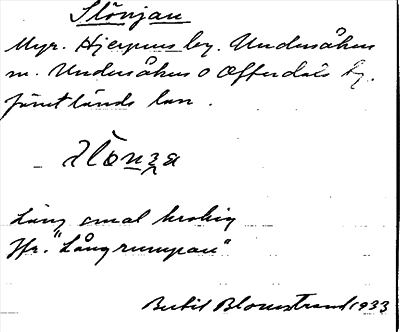 Slönjan
Myr. Hjerpens by. Undersåkers
sn. Undersåkers o Offerdals tg.
Jämtlands län.
slönza
Lång smal krokig
Jfr. "Långrumpan"
Bertil Blomstrand 1933